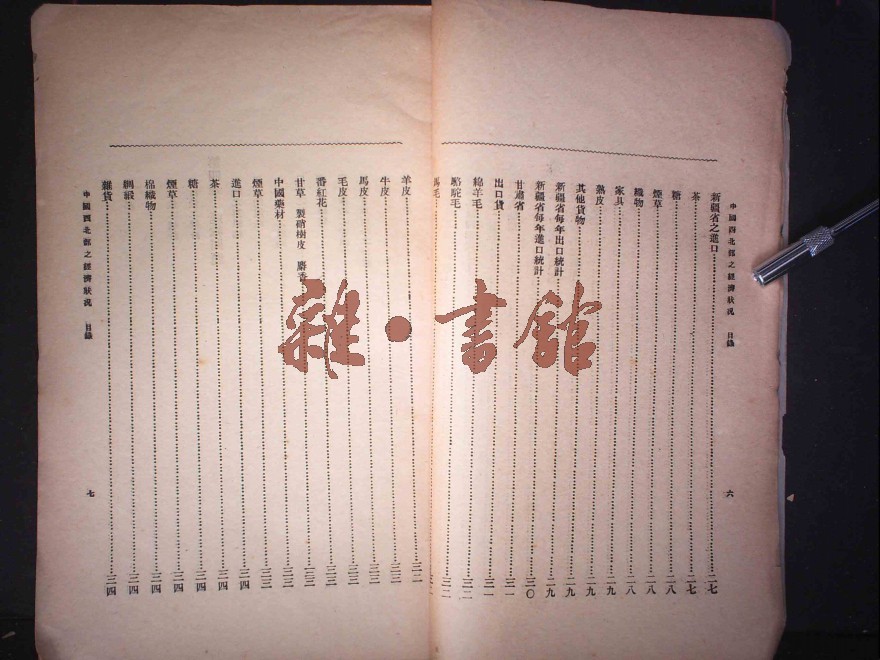 中國西北部之經濟狀況 目錄 六
新疆省之進口……二七
茶……二七
糖……二八
煙草……二八
織物……二八
家具……二九
熟皮……二九
其他貨物……二九
新疆省每年出口統計……二九
新疆省每年進口統計……三〇
甘肅省……三一
出口貨……三一
綿羊毛……三二
駱駝毛……三二
馬毛
羊皮……三三
牛皮……三三
馬皮……三三
毛皮……三三
番紅花……三三
甘草 製硝樹皮 麝香……三三
中國藥材……三三
煙草……三三
進口……三四
茶……三四
糖……三四
煙草……三四
棉織物……三四
綢緞……三四
雜貨……三四
中國西北部之經濟狀況 目錄 七
雜·書館